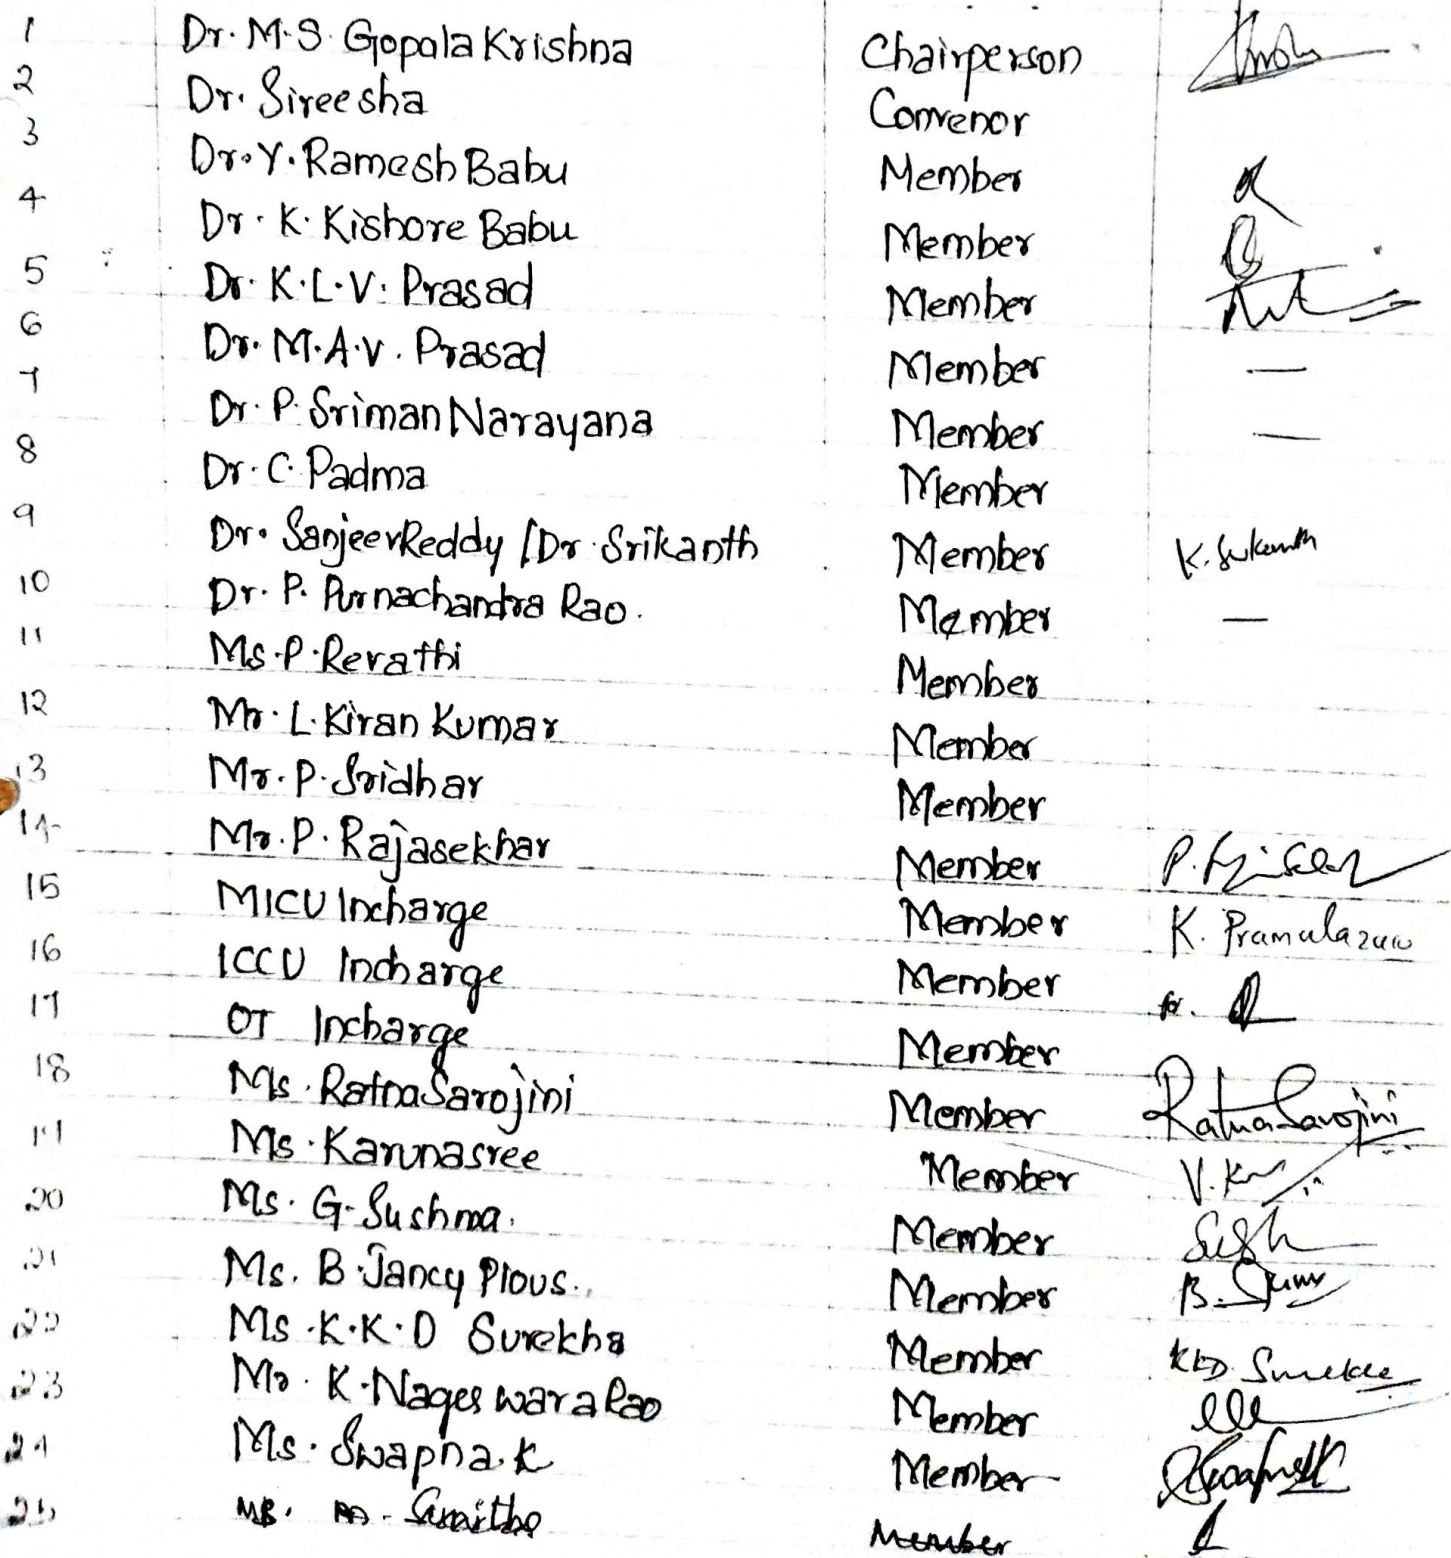 1 Dr. M.S. Gopala Krishna Chairperson
2 Dr. Sireesha Convenor
3 Dr. Y. Ramesh Babu Member
4 Dr. K. Kishore Babu Member
5 Dr. K.L.V. Prasad Member
6 Dr. M.A.V. Prasad Member —
7 Dr. P. Sriman Narayana Member —
8 Dr. C. Padma Member
9 Dr. Sanjeev Reddy / Dr. Srikanth Member K. Srikanth
10 Dr. P. Purnachandra Rao. Member —
11 Ms. P. Revathi Member
12 Mr. L. Kiran Kumar Member
13 Mr. P. Sridhar Member
14 Mr. P. Rajasekhar Member
15 MICU Incharge Member K.
16 ICCU Incharge Member for.
17 OT Incharge Member
18 Ms. Ratna Sarojini Member Ratna Sarojini
19 Ms. Karunasree Member
20 Ms. G. Sushma. Member
21 Ms. B. Jancy Pious. Member
22 Ms. K.K.D Surekha Member KKD Surekha
23 Mr. K. Nageswara Rao Member
24 Ms. Swapna. K Member
25 Ms. M. Sunitha Member